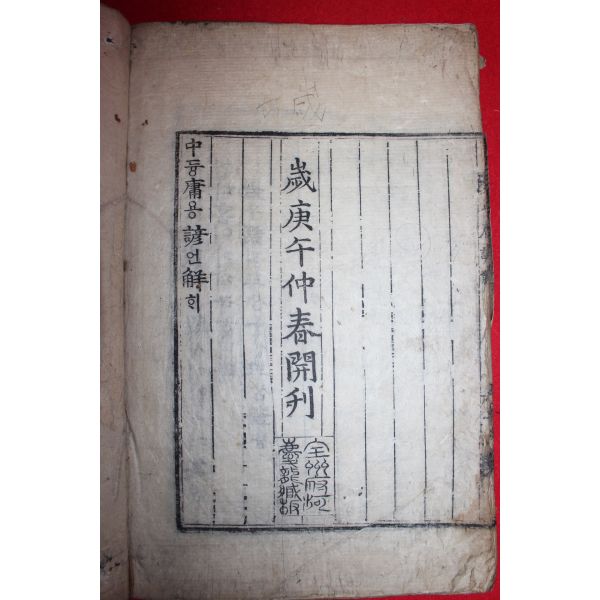 歲庚午仲春開刋
全州府河
慶龍藏板
中듕庸용諺언解ᄒᆡ